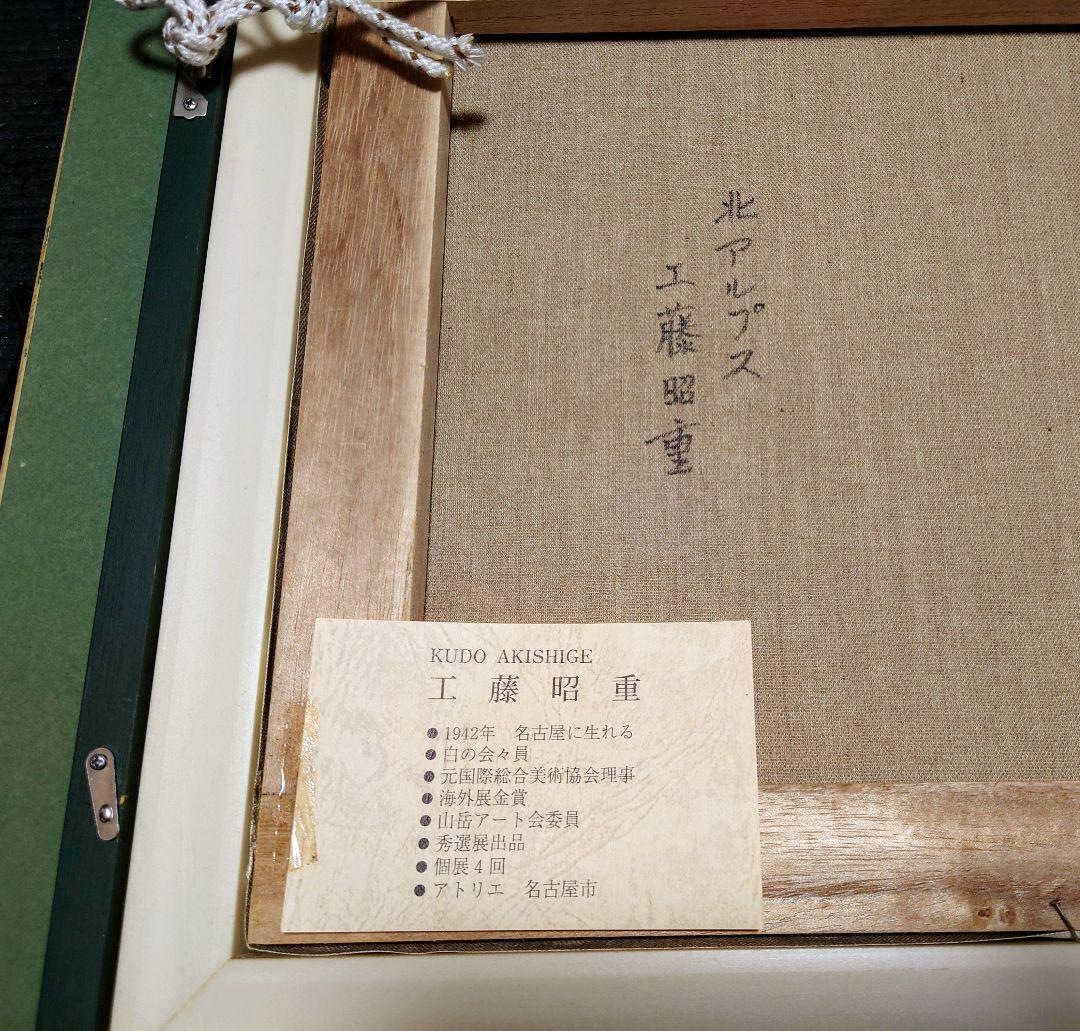 北アルプス
工藤昭重
KUDO AKISHIGE
工藤昭重
●1942年　名古屋に生れる
●白の会々員
●元国際総合美術協会理事
●海外展金賞
●山岳アート会委員
●秀選展出品
●個展4回
●アトリエ　名古屋市